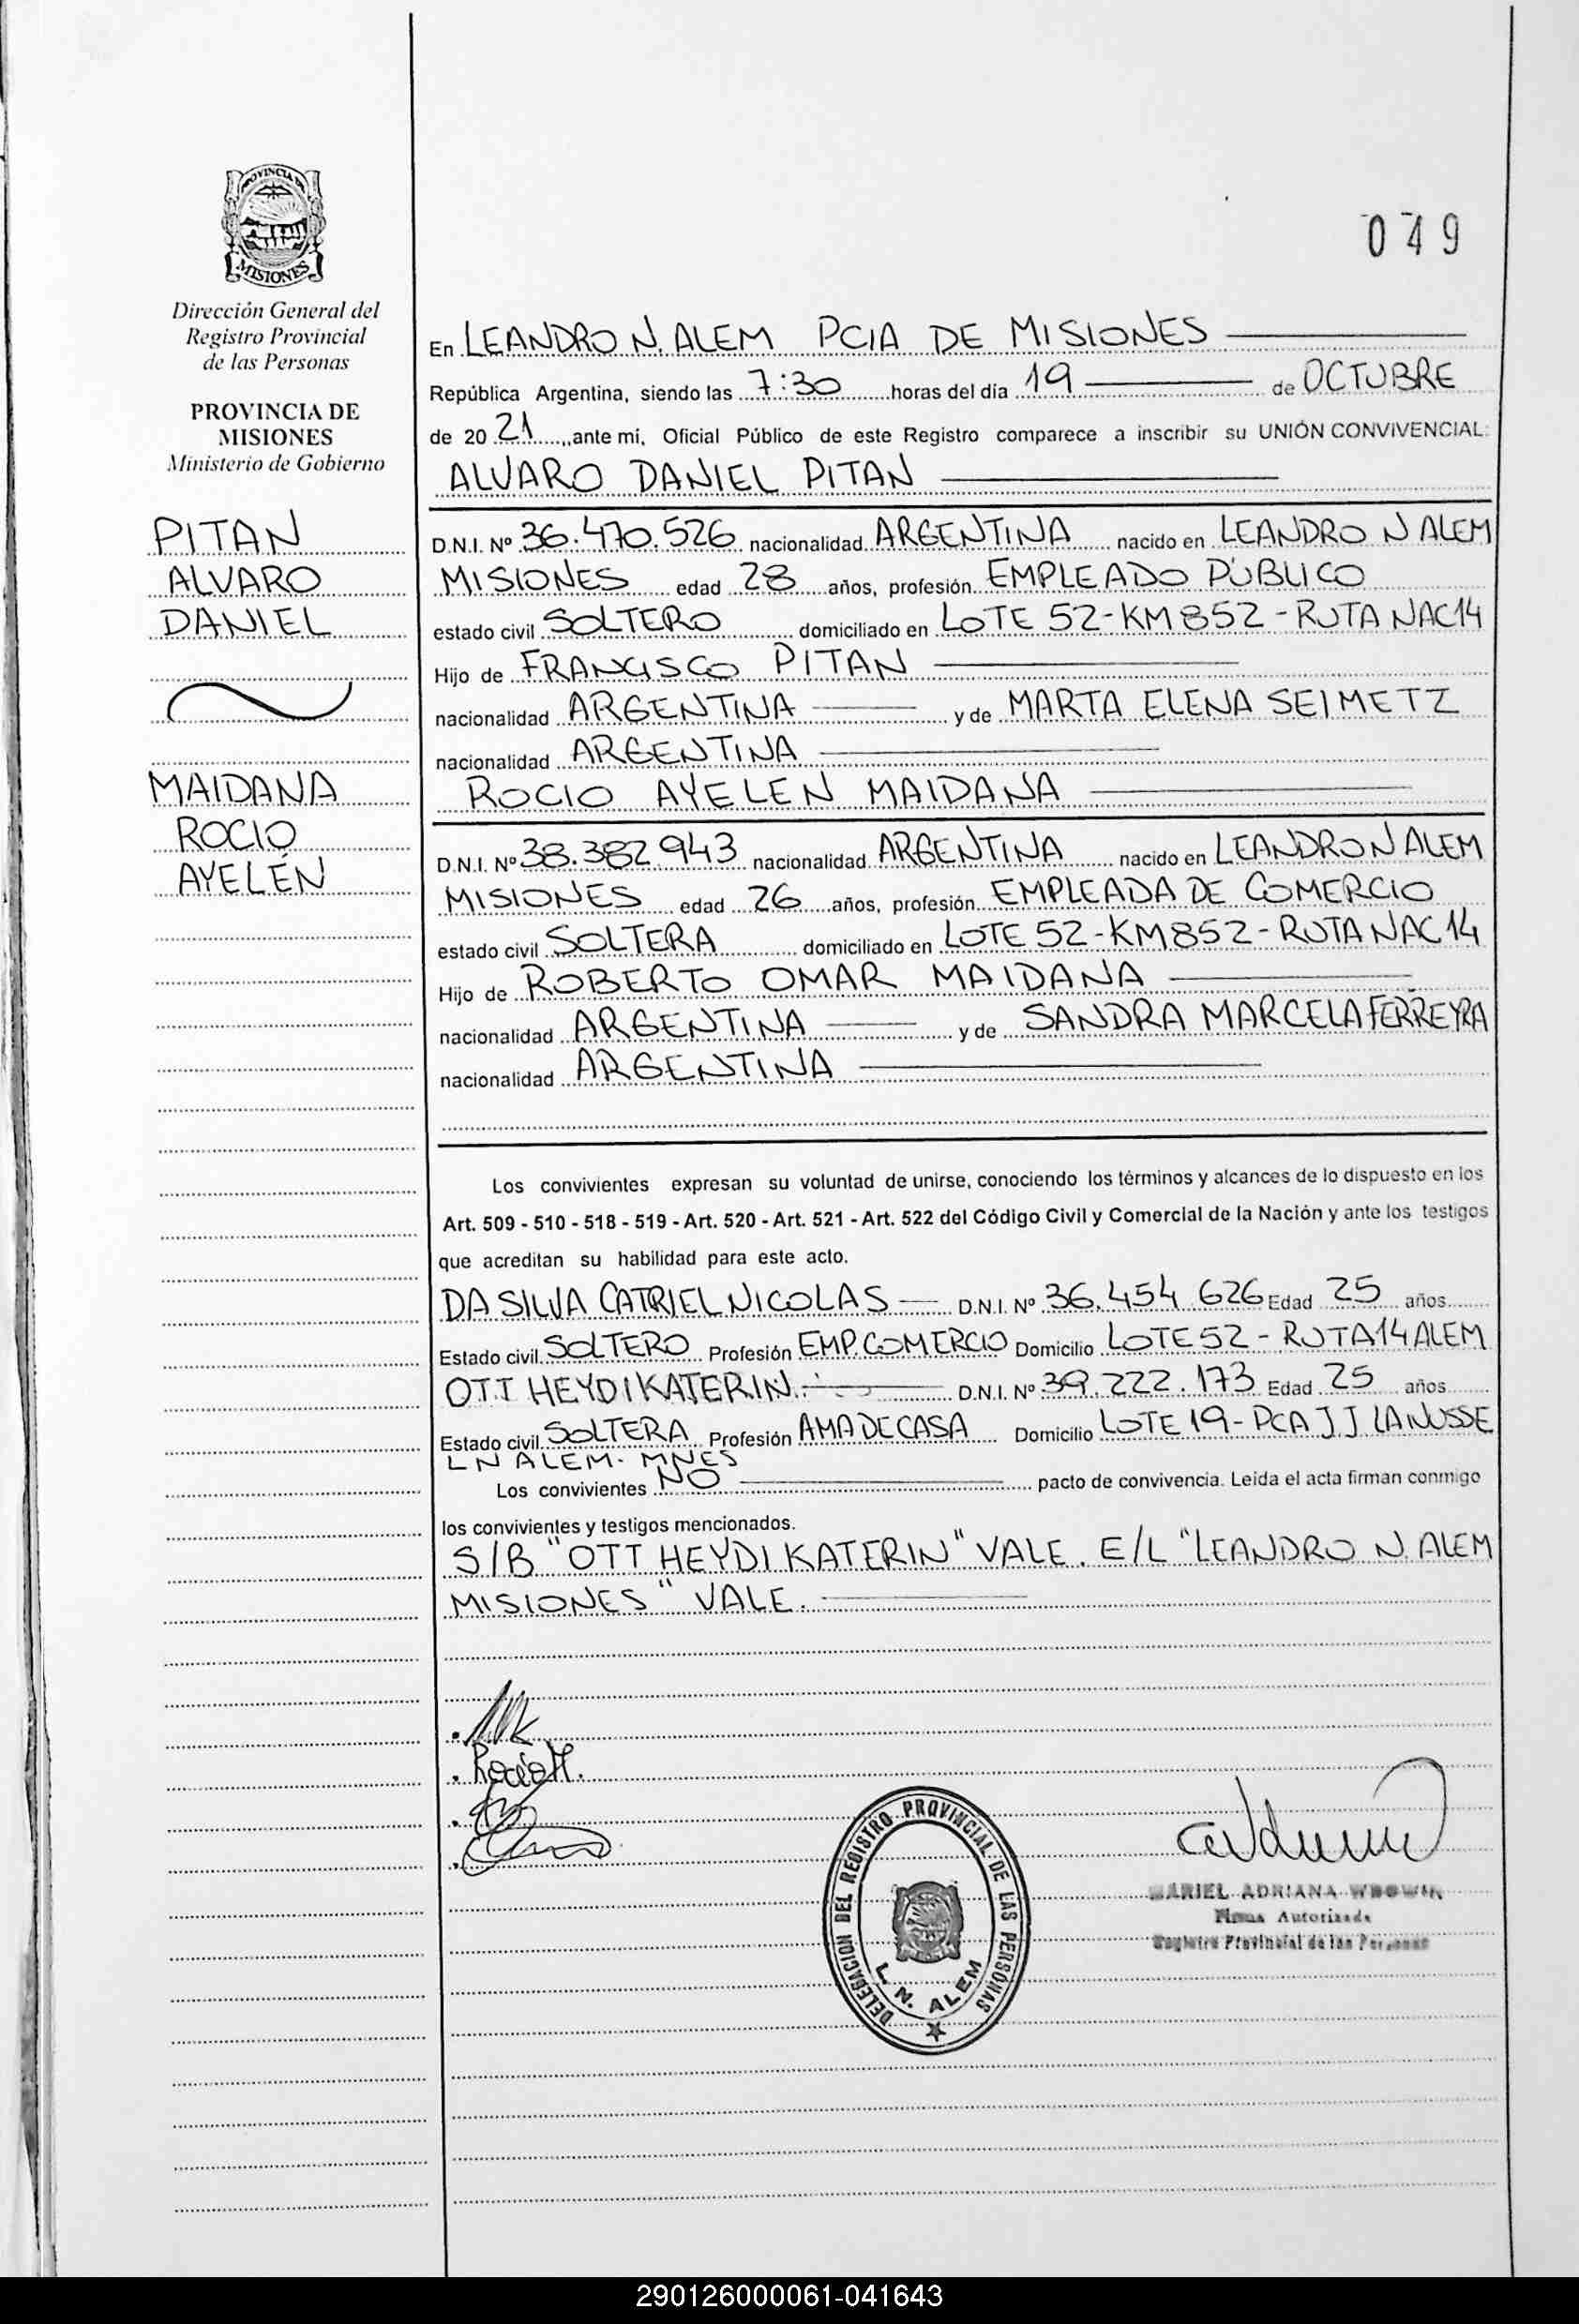 PROVINCIA DE
MISIONES
Dirección General del
Registro Provincial
de las Personas
PROVINCIA DE
MISIONES
Ministerio de Gobierno
PITAN
ALVARO
DANIEL
MAIDANA
ROCIO
AYELÉN
049
En LEANDRO N. ALEM PCIA DE MISIONES
República Argentina, siendo las 7:30 horas del día 19 de OCTUBRE
de 20 21 ,,ante mi, Oficial Público de este Registro comparece a inscribir su UNIÓN CONVIVENCIAL:
ALVARO DANIEL PITAN
D.N.I. Nº 36.470.526 nacionalidad ARGENTINA nacido en LEANDRO N ALEM
MISIONES edad 28 años, profesión EMPLEADO PÚBLICO
estado civil SOLTERO domiciliado en LOTE 52-KM 852 - RUTA NAC14
Hijo de FRANCISCO PITAN
nacionalidad ARGENTINA y de MARTA ELENA SEIMETZ
nacionalidad ARGENTINA
ROCIO AYELEN MAIDANA
D.N.I. Nº 38.382.943 nacionalidad ARGENTINA nacido en LEANDRO N ALEM
MISIONES edad 26 años, profesión EMPLEADA DE COMERCIO
estado civil SOLTERA domiciliado en LOTE 52-KM852-RUTA NAC 14
Hijo de ROBERTO OMAR MAIDANA
nacionalidad ARGENTINA y de SANDRA MARCELA FERREYRA
nacionalidad ARGENTINA
Los convivientes expresan su voluntad de unirse, conociendo los términos y alcances de lo dispuesto en los
Art. 509 - 510 - 518 - 519 - Art. 520 - Art. 521 - Art. 522 del Código Civil y Comercial de la Nación y ante los testigos
que acreditan su habilidad para este acto.
DA SILVA CATRIEL NICOLAS D.N.I. Nº 36.454.626 Edad 25 años
Estado civil SOLTERO Profesión EMP. COMERCIO Domicilio LOTE 52 - RUTA 14 ALEM
OTT HEYDI KATERIN D.N.I. Nº 39.222.173 Edad 25 años
Estado civil SOLTERA Profesión AMA DE CASA Domicilio LOTE 19 - PCA J J LANUSSE
L N ALEM. MNES
Los convivientes NO pacto de convivencia. Leída el acta firman conmigo
los convivientes y testigos mencionados.
S/B "OTT HEYDI KATERIN" VALE. E/L "LEANDRO N. ALEM
MISIONES" VALE.
Rocio M.
DELEGACION DEL REGISTRO PROVINCIAL DE LAS PERSONAS
L. N. ALEM
MARIEL ADRIANA
Firma Autorizada
Registro Provincial de las Personas
290126000061-041643